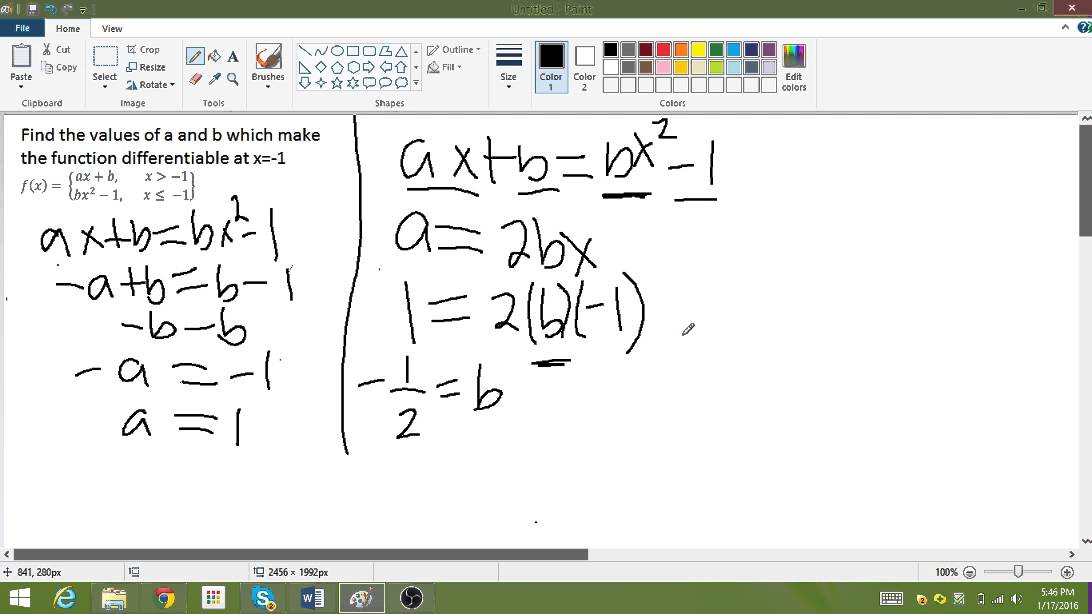 Untitled - Paint
File Home View
Paste
Cut
Copy
Clipboard
Select
Crop
Resize
Rotate
Image
Tools
Brushes
Shapes
Outline
Fill
Size
Color 1
Color 2
Colors
Edit colors
Find the values of a and b which make
the function differentiable at x=-1
f(x) = {ax + b, x > −1
bx² − 1, x ≤ −1}
ax+b=bx²-1
-a+b=b-1
-b-b
-a=-1
a=1
ax+b=bx²-1
a=2bx
1=2(b)(-1)
-1/2=b
841, 280px
2456 × 1992px
100%
5:46 PM
1/17/2016